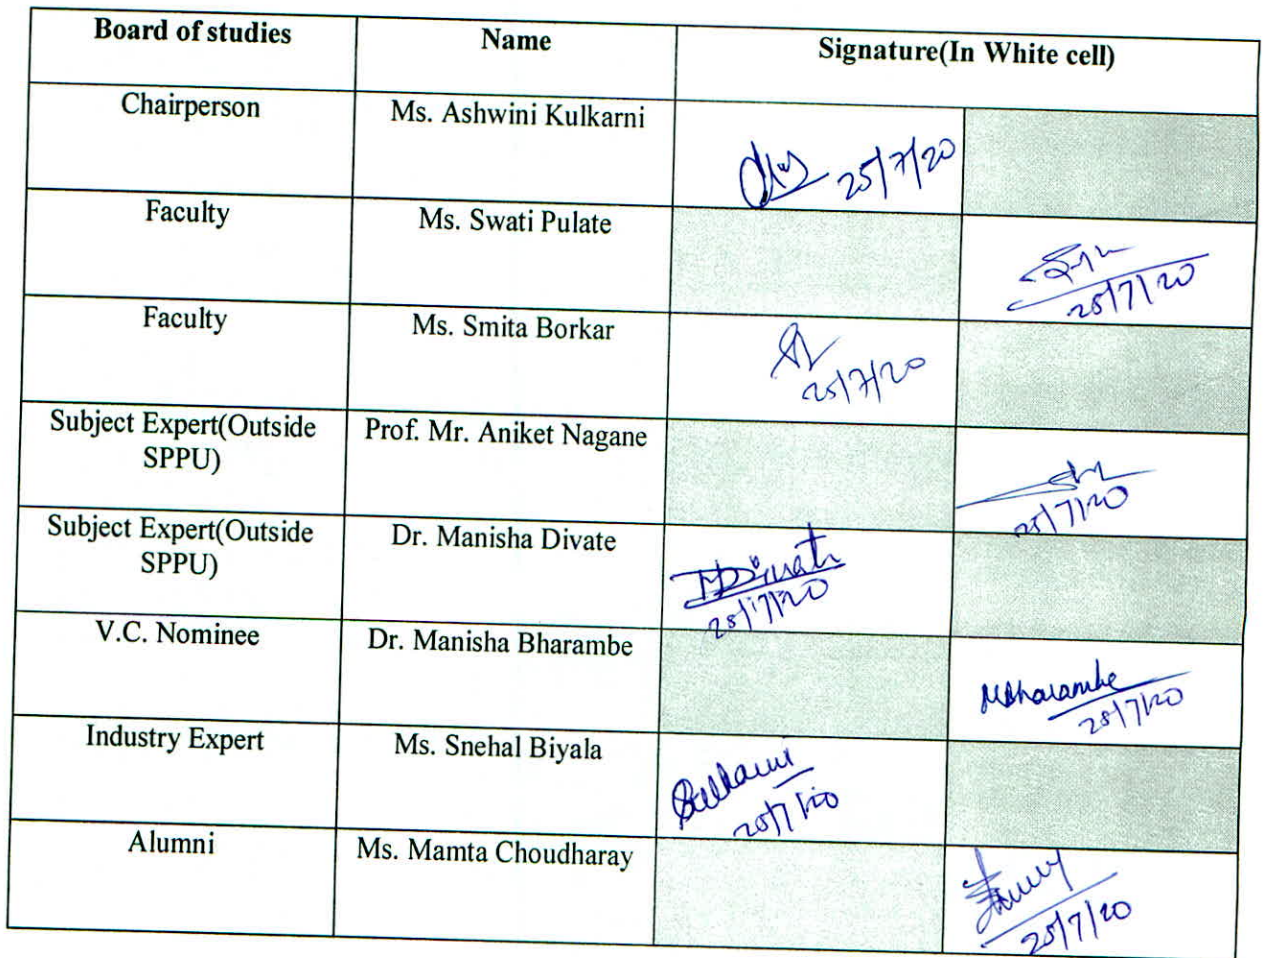 Board of studies
Name
Signature(In White cell)
Chairperson
Ms. Ashwini Kulkarni
25/7/20
Faculty
Ms. Swati Pulate
25/7/20
Faculty
Ms. Smita Borkar
25/7/20
Subject Expert(Outside
SPPU)
Prof. Mr. Aniket Nagane
25/7/20
Subject Expert(Outside
SPPU)
Dr. Manisha Divate
MDivate
25/7/20
V.C. Nominee
Dr. Manisha Bharambe
MBharambe
25/7/20
Industry Expert
Ms. Snehal Biyala
25/7/20
Alumni
Ms. Mamta Choudharay
25/7/20